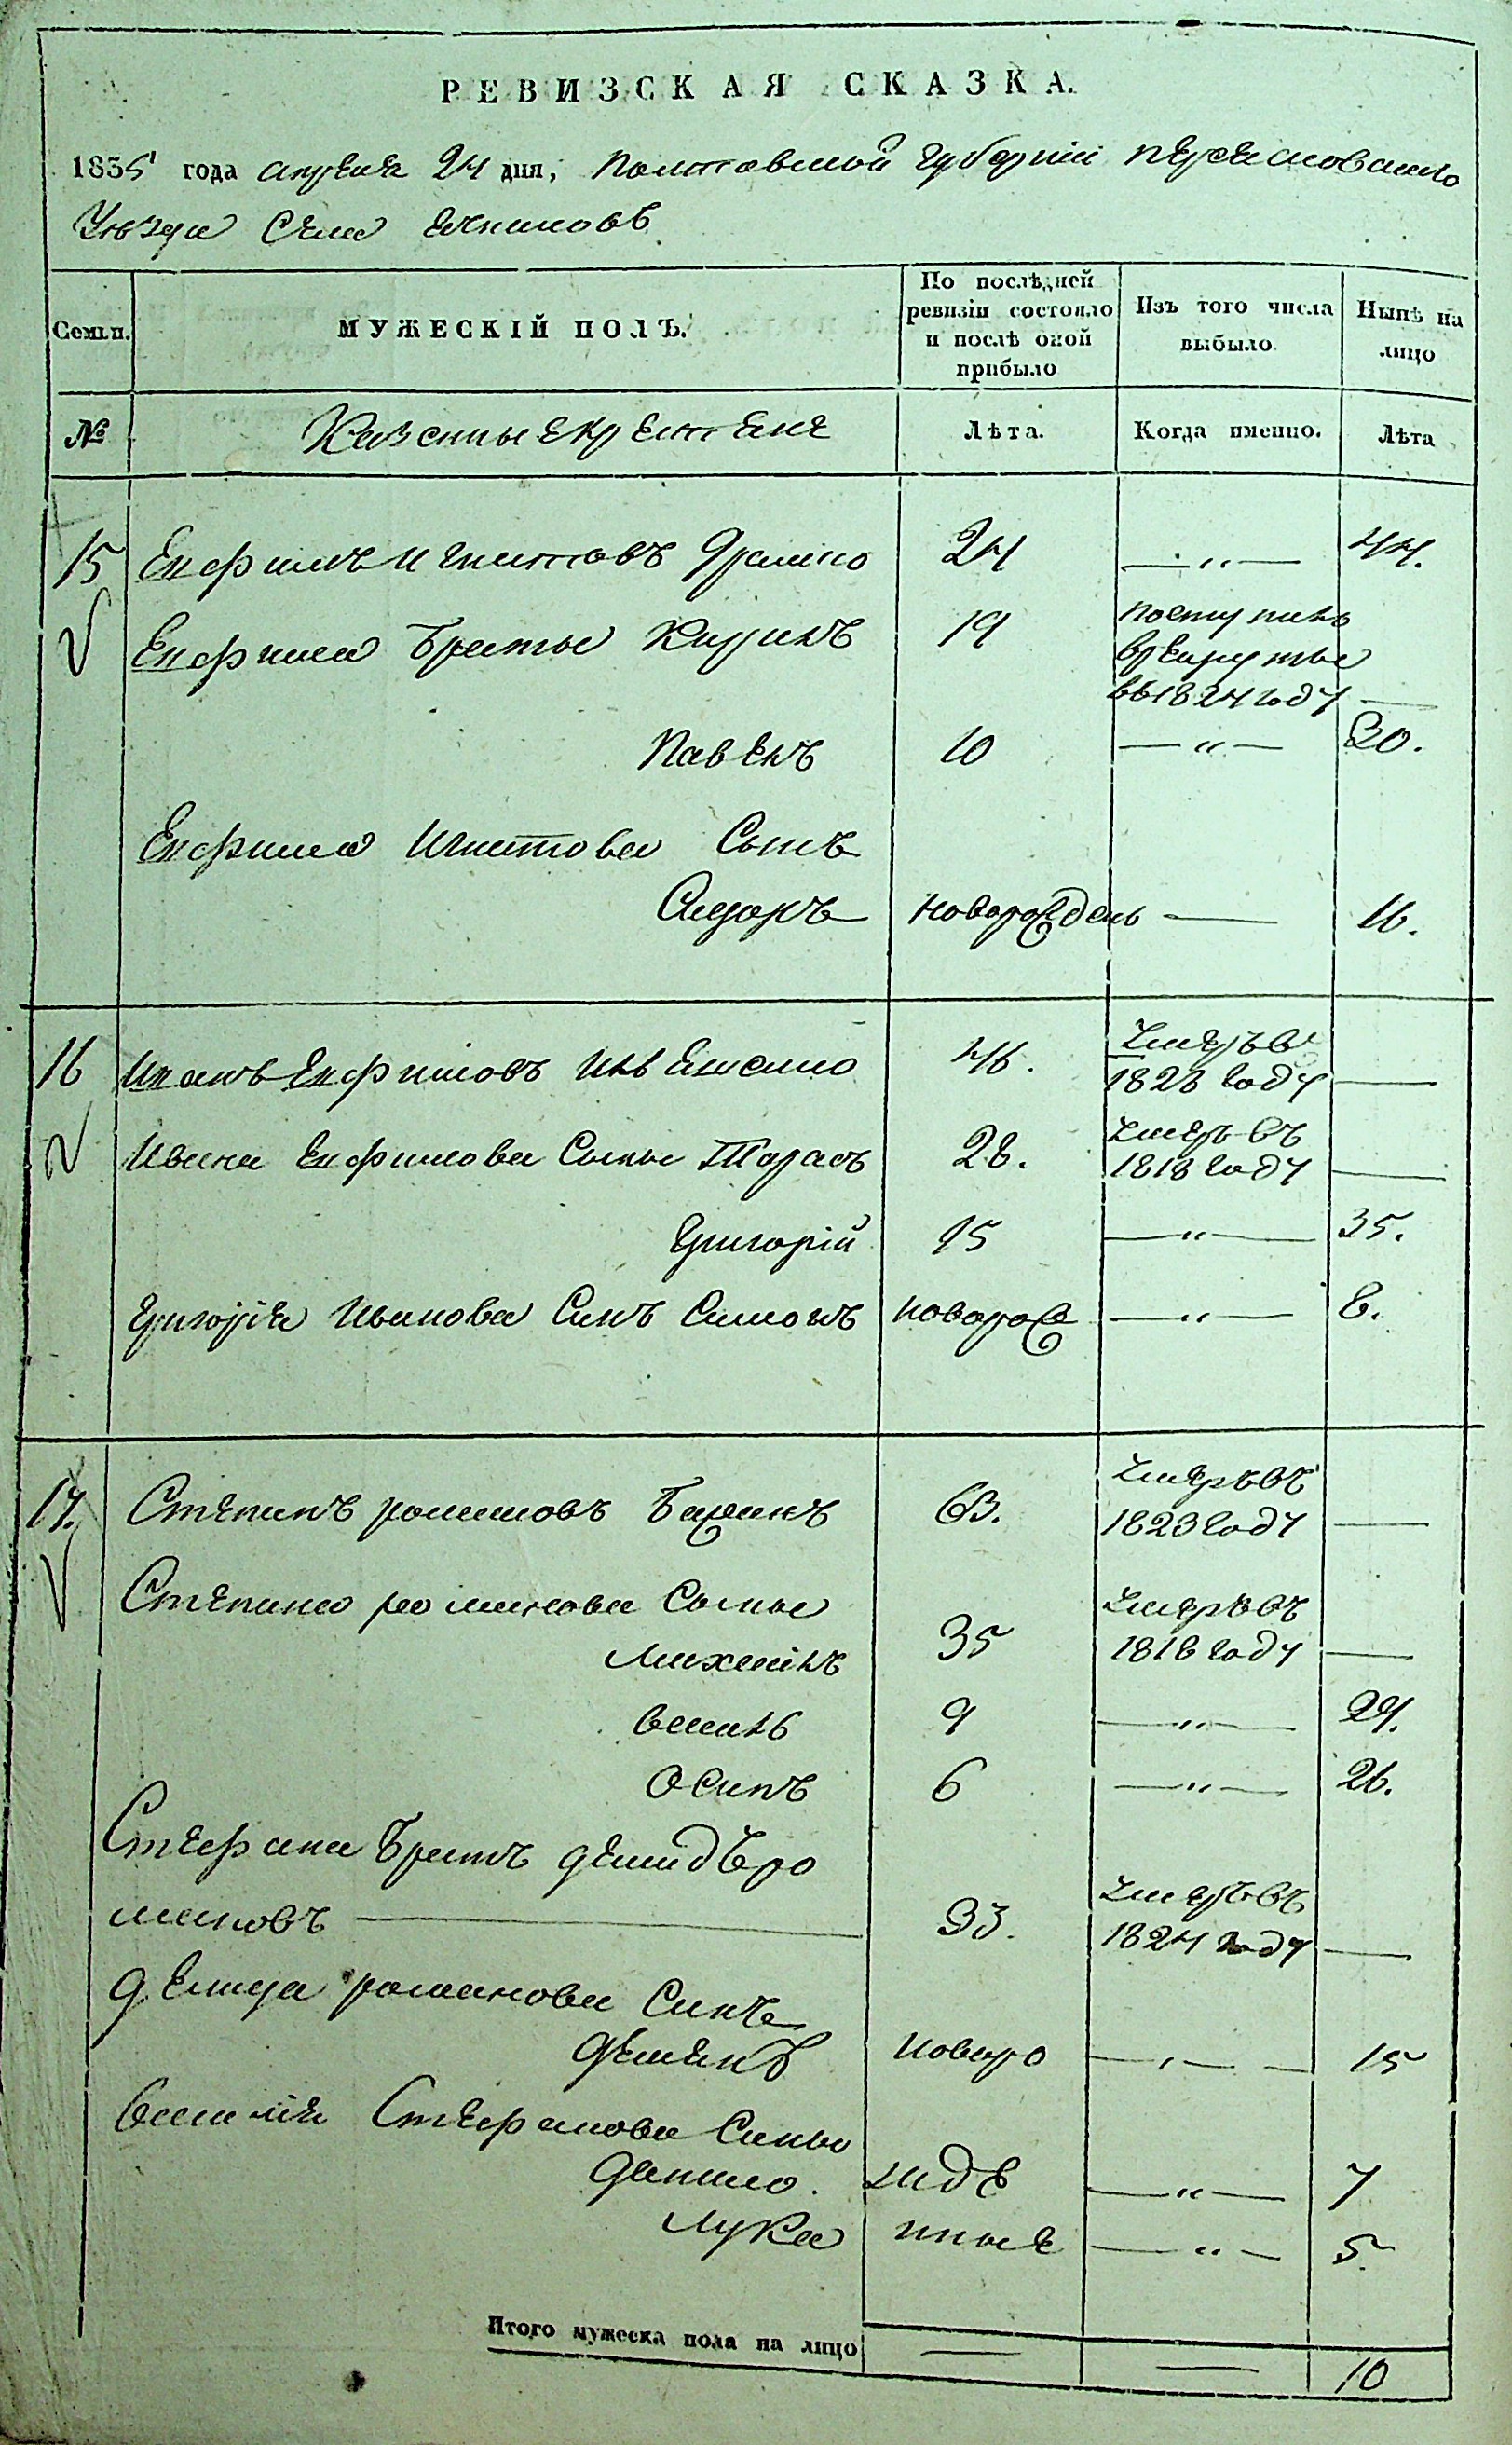 РЕВИЗСКАЯ СКАЗКА.
1835 года апреля 24 дня, Полтавской губернїи переясловского
Уезда Села
Семьи. МУЖЕСКІЙ ПОЛЪ. По послѣдней ревизіи состояло и послѣ оной прибыло Изъ того числа выбыло. Нынѣ на лицо
№ Казенные крестьяне Лѣта. Когда именно. Лѣта
15 Ефримъ Игнатовъ 24 — „ — 44.
Ефрима Братья Кирилъ 19 поступилъ
врекруты
въ 1824 году —
Павелъ 10 — „ — 30.
Ефрима Игнатова Сынъ
Сидоръ новорожденъ — 16.
16 Иванъ Ефримовъ 46. Умеръ в
1828 году —
Ивана Ефримова Сыны Тарасъ 28. Умеръ въ
1818 году —
Григорій 15 — „ — 35.
Григорія Иванова Синъ Симонъ новорож — „ — 8.
17. Степанъ романовъ 63. Умеръ въ
1823 году —
Степана романова Сыны
Михаілъ 35 Умеръ въ
1818 году —
василь 9 — „ — 29.
Осипъ 6 — „ — 26.
Стефана Братъ демидъ ро
мановъ — 33. Умеръ въ
1824 году —
демида романова Синъ
новоро — „ — 15
василія Стефанова Сины
данило. — „ — 7
Лука — „ — 5.
Итого мужеска пола на лицо — — 10